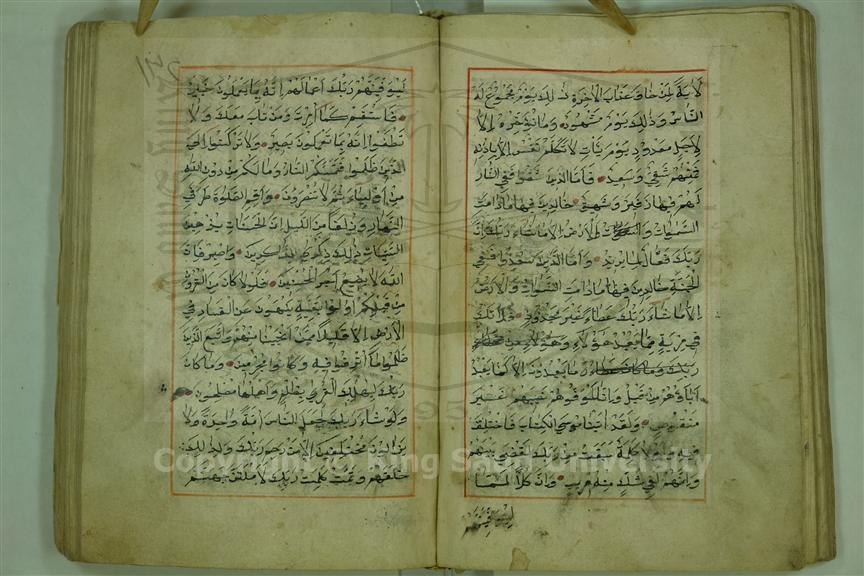 لاية لمن خاف عذاب الاخرة ذلك يوم مجموع له
الناس وذلك يوم مشهود وما نؤخره الا
لاجل معدود يوم يات لا تكلم نفس الا باذنه
فمنهم شقي وسعيد فاما الذين شقوا ففي النار
لهم فيها زفير وشهيق خالدين فيها ما دامت
السموات والارض الا ما شاء ربك ان
ربك فعال لما يريد واما الذين سعدوا ففي
الجنة خالدين فيها ما دامت السموات والارض
الا ما شاء ربك عطاء غير مجذوذ فلا تك
في مرية مما يعبد هؤلاء
ما يعبدون الا كما يعبد
اباؤهم من قبل وانا لموفوهم نصيبهم غير
منقوص ولقد اتينا موسى الكتاب فاختلف
فيه ولولا كلمة سبقت من ربك لقضي بينهم
وانهم لفي شك منه مريب وان كلا لما
ليوفينهم
٢٤١
ليوفينهم ربك اعمالهم انه بما يعملون خبير
فاستقم كما امرت ومن تاب معك ولا
تطغوا انه بما تعملون بصير ولا تركنوا الى
الذين ظلموا فتمسكم النار وما لكم من دون الله
من اولياء ثم لا تنصرون واقم الصلوة طرفي
النهار وزلفا من الليل ان الحسنات يذهبن
السيئات ذلك ذكرى للذاكرين واصبر فان
الله لا يضيع اجر المحسنين فلولا كان من القرون
من قبلكم اولوا بقية ينهون عن الفساد في
الارض الا قليلا ممن انجينا منهم واتبع الذين
ظلموا ما اترفوا فيه وكانوا مجرمين وما كان
ربك ليهلك القرى بظلم واهلها مصلحون
ولو شاء ربك لجعل الناس امة واحدة ولا
يزالون مختلفين الا من رحم ربك ولذلك
خلقهم وتمت كلمت ربك لاملئن جهنم
Copyright © King Saud University